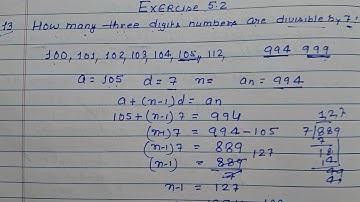 EXERCISE 5.2
13 How many three digits numbers are divisible by 7?
100, 101, 102, 103, 104, 105, 112, 994 999
a = 105 d = 7 n = an = 994
a + (n-1) d = an
105 + (n-1) 7 = 994 127
(n-1) 7 = 994 - 105 7 889
(n-1) 7 = 889 7
(n-1) = 889 127 18
7 14
n-1 = 127 49
49